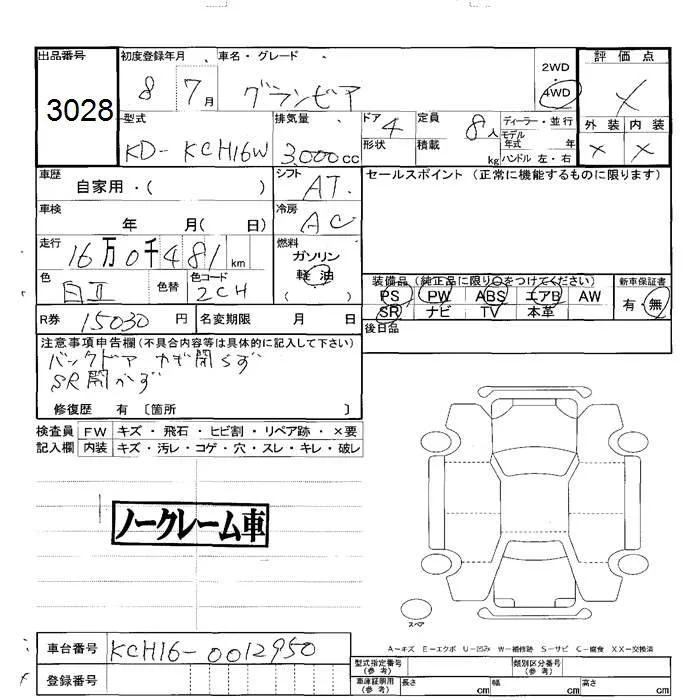 出品番号
3028
初度登録年月
8 7月
車名・グレード
グランビア
2WD
4WD
評価点
X
外装 内装
X X
型式
KD-KCH16W
排気量
3,000cc
ドア 4
形状
定員 8人
積載 kg
ディーラー・並行
モデル
年式 年
ハンドル 左・右
車歴
自家用・( )
シフト
AT.
セールスポイント (正常に機能するものに限ります)
車検
年 月( 日)
冷房
AC
走行
16万0千481km
燃料
ガソリン
軽油
( )
色
白II
色替
色コード
2CH
装備品 (純正品に限り○をつけてください)
PS PW ABS エアB AW
SR ナビ TV 本革
新車保証書
有・無
R券 15030円
名変期限 月 日
後日品
注意事項申告欄(不具合内容等は具体的に記入して下さい)
バックドア カギ閉らず
SR開かず
修復歴 有 〔箇所 〕
検査員 FW キズ・飛石・ヒビ割・リペア跡・×要
記入欄 内装 キズ・汚レ・コゲ・穴・スレ・キレ・破レ
ノークレーム車
スペア
A-キズ E-エクボ U-凹み W-補修跡 S-サビ C-腐食 XX-交換済
車台番号 KCH16-0012950
登録番号
型式指定番号
(参考)
類別区分番号
(参考)
車庫証明用
(参考)
長さ cm 幅 cm 高さ cm